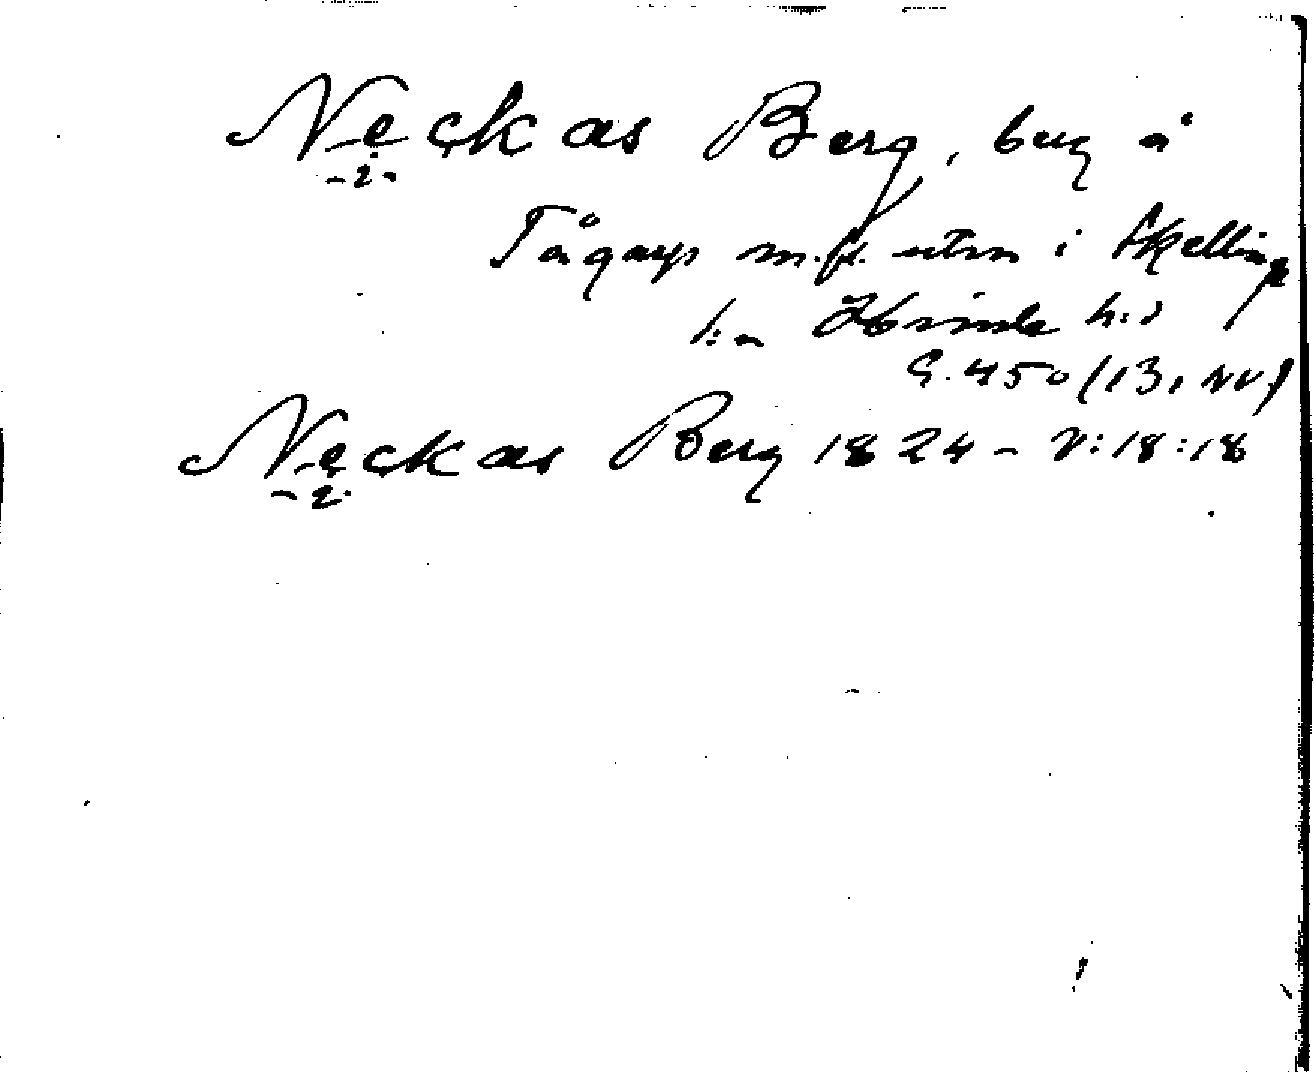 Neckas Berg, berg å
-2-
Tågarp m.fl. utm i Skelling
l:a Himle h:d
G. 450 (13, NV)
Neckas Berg 1824 - V:18:18
-2-